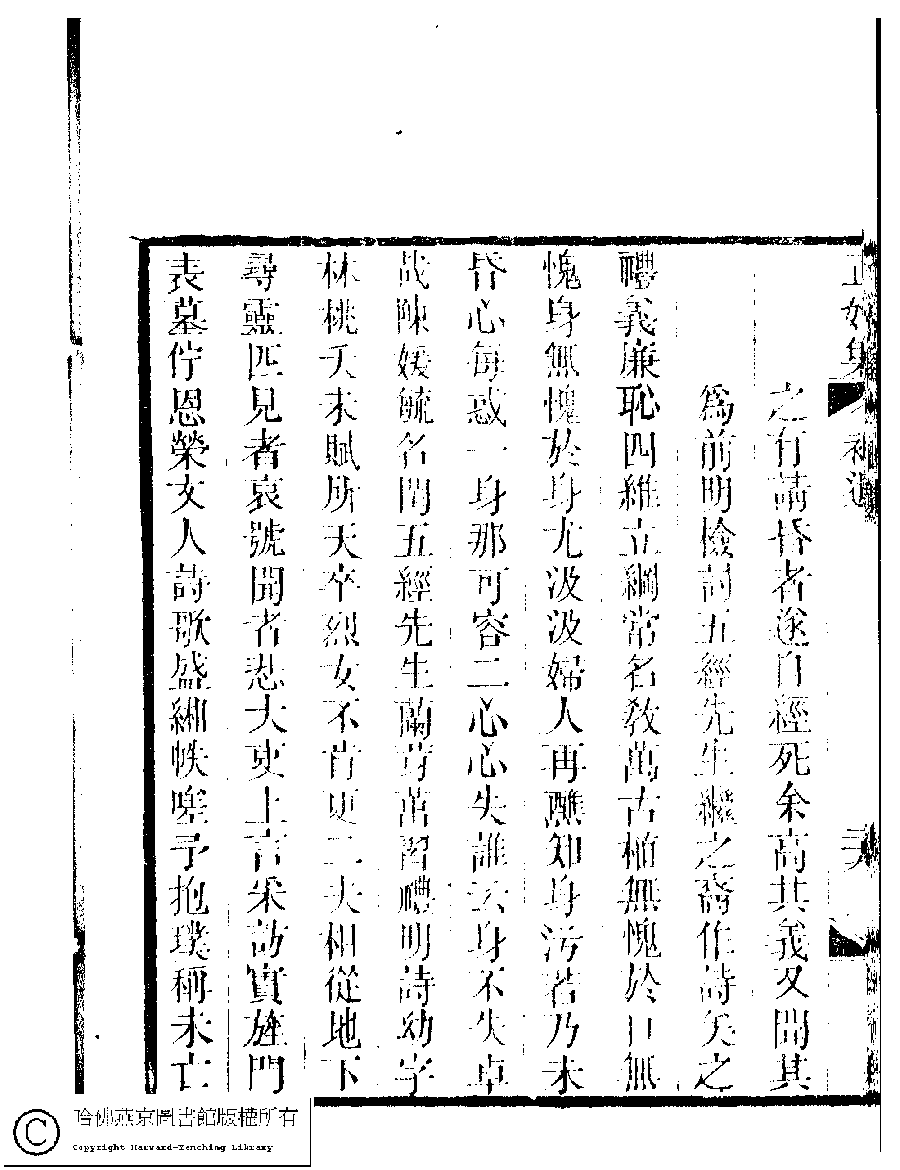 正始集 補遺 六
之有請昏者遂自經死余高其義又聞其
為前明檢討五經先生繼之裔作詩矢之
禮義廉恥四維立綱常名教萬古植無愧於口無
愧身無愧於身尤汲汲婦人再醮知身污若乃未
昏心每惑一身那可容二心心失誰云身不失卓
哉陳媛毓名閨五經先生蘭芽茁習禮明詩幼字
林桃夭未賦所天卒烈女不肯更二夫相從地下
尋靈匹見者哀號聞者悲大吏上言采訪實旌門
表墓佇恩榮女人詩歌盛緗帙嗟予抱璞稱未亡
哈佛燕京圖書館版權所有
Copyright Harvard-Yenching Library